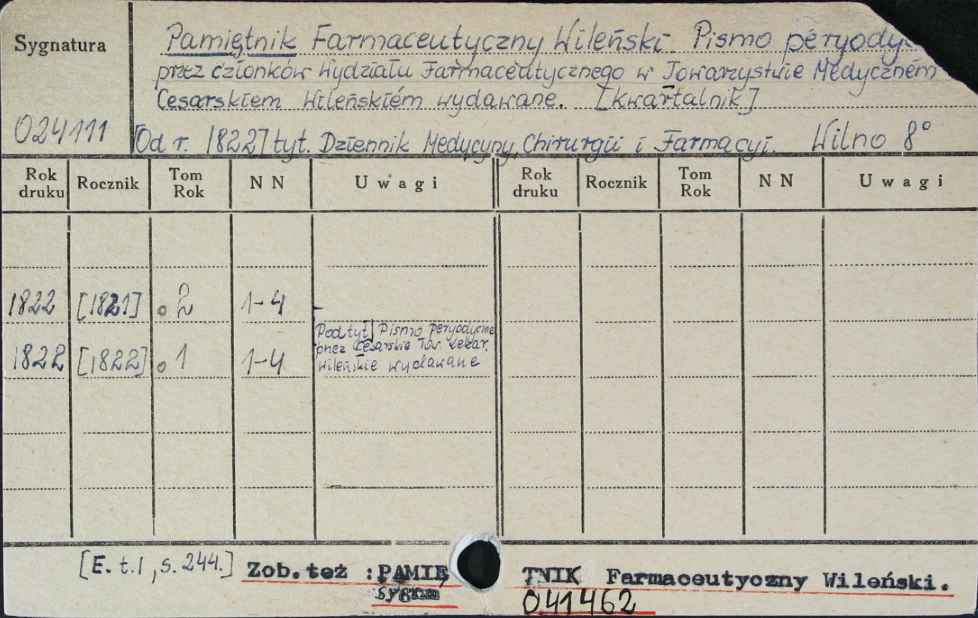 Sygnatura
Pamiętnik Farmaceutyczny Wileński. Pismo peryody
przez członków Wydziału Farmaceutycznego w Towarzystwie Medyczném
Cesarskiem Wileńskiém wydawane. [kwartalnik]
024111 [Od r. 1822] tyt. Dziennik Medycyny, Chirurgii i Farmacyi. Wilno 8°
Rok druku Rocznik Tom Rok NN Uwagi Rok druku Rocznik Tom Rok NN Uwagi
1822 [1821] o 2 1-4
Podtyt] Pismo peryodyczne
przez Cesarskie Tow. Lekar.
wileńskie wydawane
1822 [1822] o 1 1-4
[E. t. I, s. 244.] Zob. też : PAMIĘTNIK Farmaceutyczny Wileński.
sygn. 041462